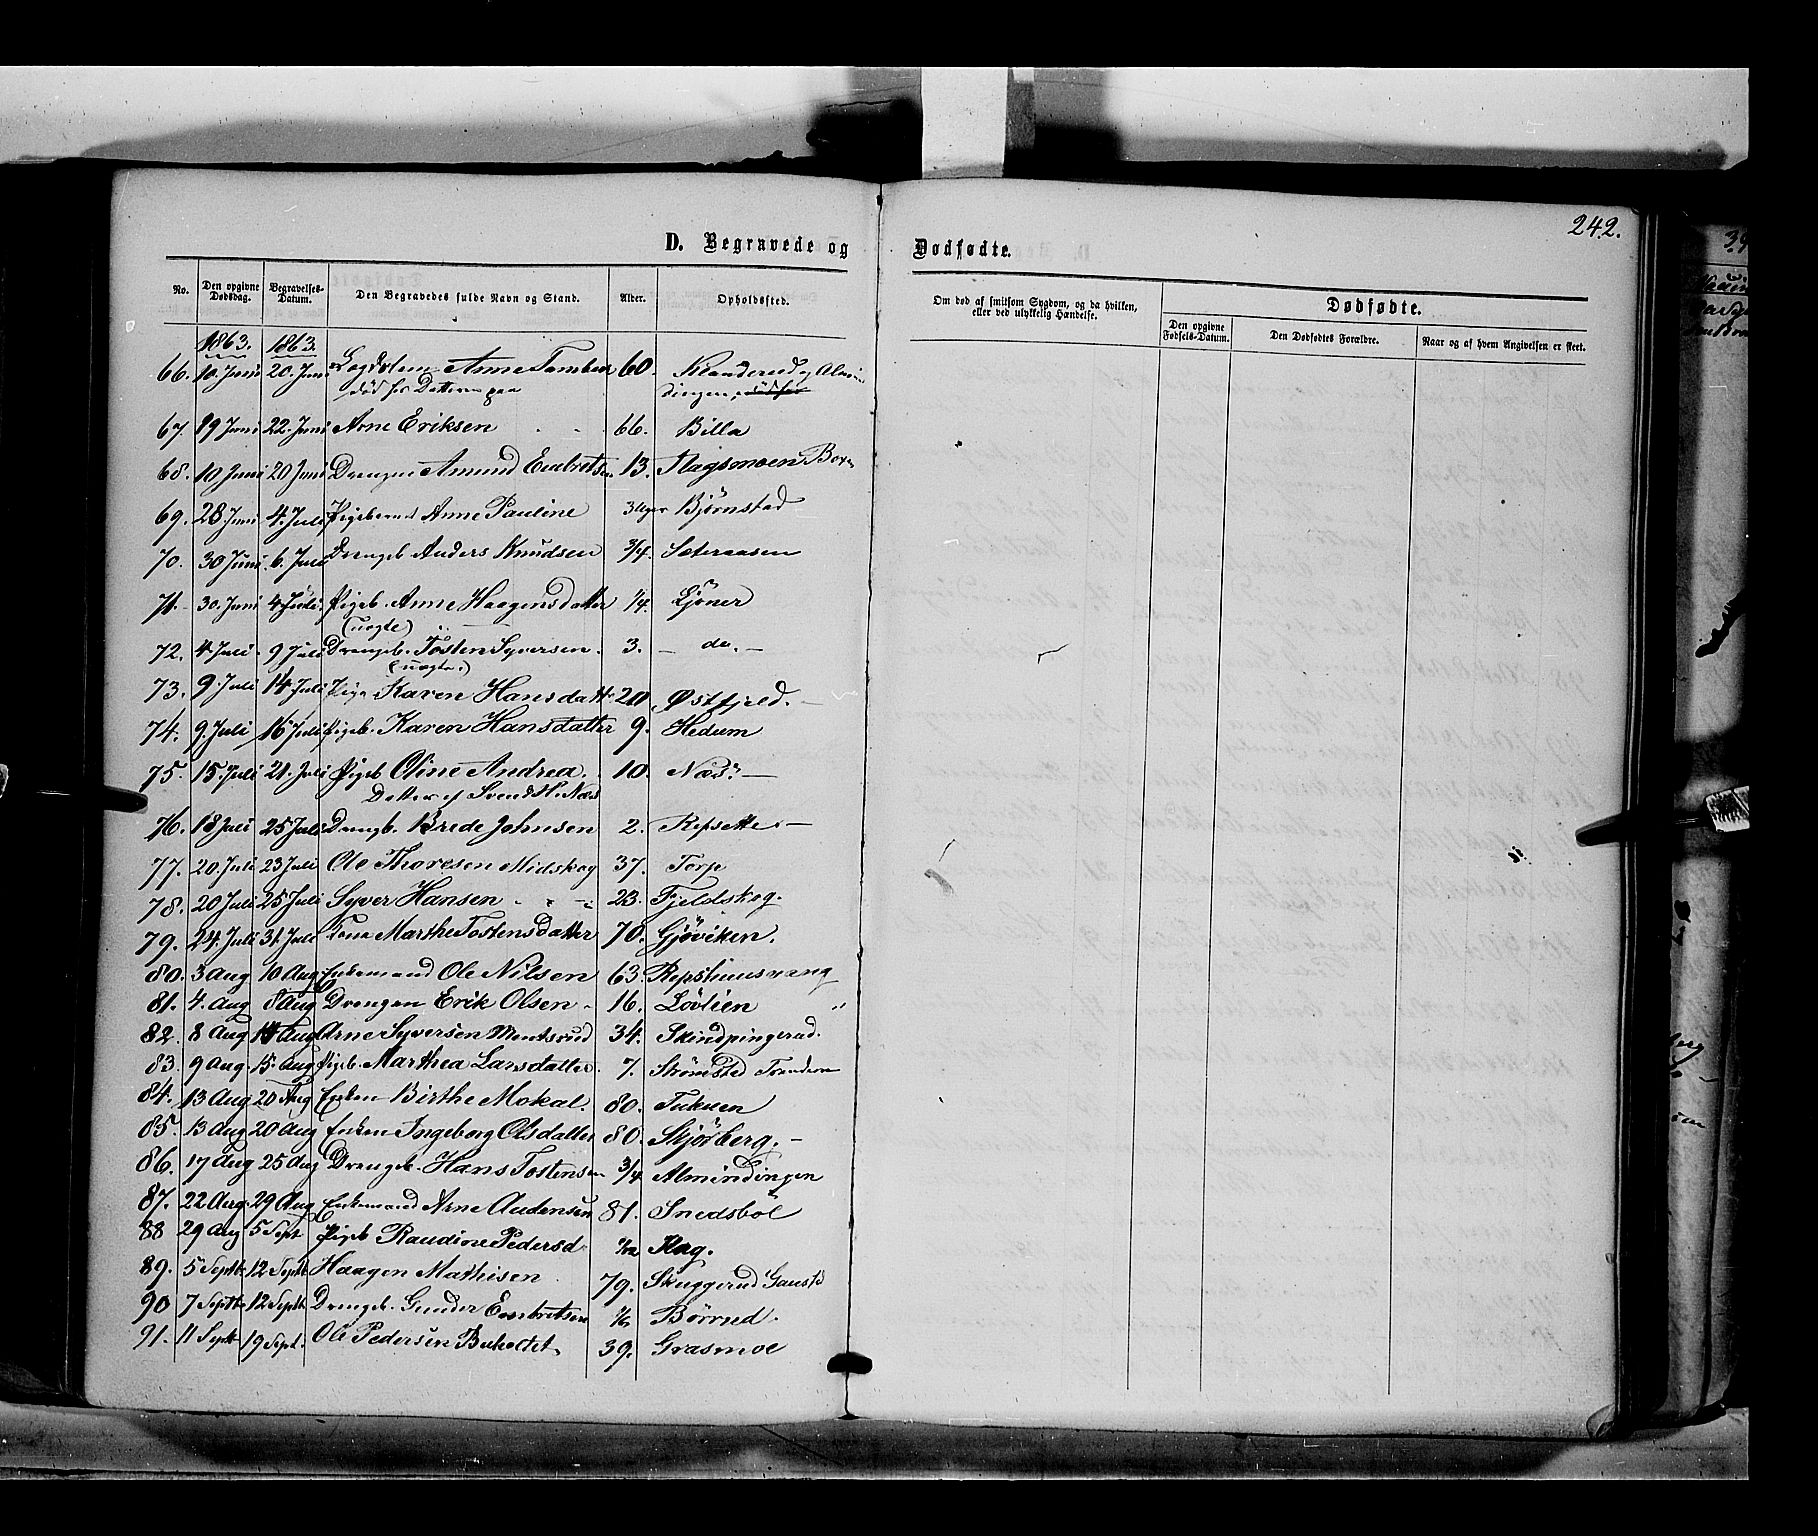 242.
D. Begravede og Dødfødte.
No. Den opgivne Dødsdag. Begravelses-Datum. Den Begravedes fulde Navn og Stand. Alder. Opholdssted. Om død af smitsom Sygdom, og da hvilken, eller ved ulykkelig Hændelse. Dødfødte.
Den opgivne Fødsels-Datum. Den Dødfødtes Forældre. Naar og af hvem Angivelsen er skeet.
1863. 1863.
66. 10. Juni 20. Juni Arne 60.
død for
67. 19 Juni 22. Juni Arne Eriksen 66. Billa
68. 10 Juni 20 Juni Drengen Amund Embretsen 13. Flagsmoen
69. 28 Juni 4. Juli Pigebarnet Anne Pauline 3 Uger Bjørnstad
70. 30 Juni 6. Juli Drengeb. Anders Knudsen 3/4. Sæteraasen
71. 30. Juni 4 Juli. Pigeb. Anne Haagensdatter 1/4. Ljöner
(uægte)
72. 4. Juli 9 Juli Drengeb. Tosten Syversen. 3. — do. —
(uægte.)
73. 9. Juli 14. Juli Pige Karen Hansdatt. 20. Østfjeld. —
74. 9. Juli 16 Juli Pigeb. Karen Hansdatter 9. Hedum
75. 15. Juli 21. Juli Pigeb Oline Andrea. 10. Næs. —
Datter af Svend H. Næs
76. 18 Juli 25 Juli Drengb. Brede Johnsen 2. Repsette. —
77. 20. Juli 23 Juli Ole Thoresen Midskog 37. Torp
78. 20 Juli 25 Juli Syver Hansen 23. Fjeldskog.
79. 24. Juli 31. Juli Marthe Tostensdatter 70. Gjöviken.
80. 3 Aug 10 Aug Enkemand Ole Nilsen 63.
81. 4. Aug 8 Aug Drengen Erik Olsen 16. Lövlien "
82. 8 Aug 14 Aug Arne Syversen 34.
83. 9 Aug 15. Aug Pigeb. Marthea Larsdatter. 7. Strømsted
84. 13 Aug 20 Aug Enken Birthe Mokal. 80.
85. 13 Aug 20 Aug Enken Ingeborg Olsdatter 80. Skjörberg. —
86. 17 Aug 25 Aug Drengeb. Hans Tostensen 3/4 Almindingen
87. 22 Aug. 29 Aug Enkemand Arne Audensen 81. Snedsböl
88 29 Aug 5 Sept Pigeb Randine Pedersd 1/12 Flag.
89. 5 Septb 12 Septb Haagen Mathisen 79. Skuggerud
90 7 Septb. 12 Septb Drengeb. Gunder Embretsen 1/6 Börrud.
91. 11 Septb 19 Sept. Ole Pedersen 39. Grasmoe